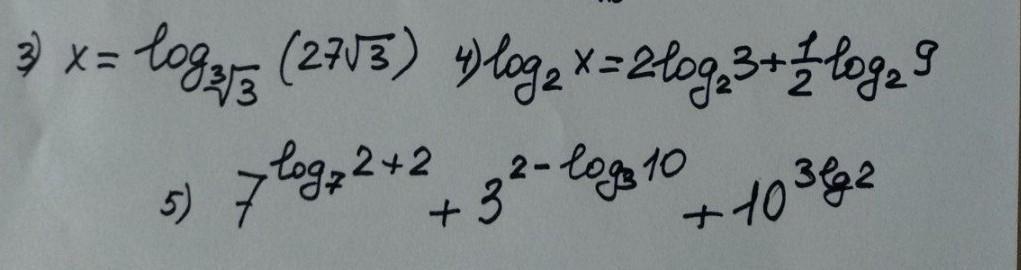 3) x = log_{∛3} (27√3) 4) log₂ x = 2log₂3 + 1/2 log₂ 9
5) 7^{log₇ 2 + 2} + 3^{2 - log₃ 10} + 10^{3lg2}